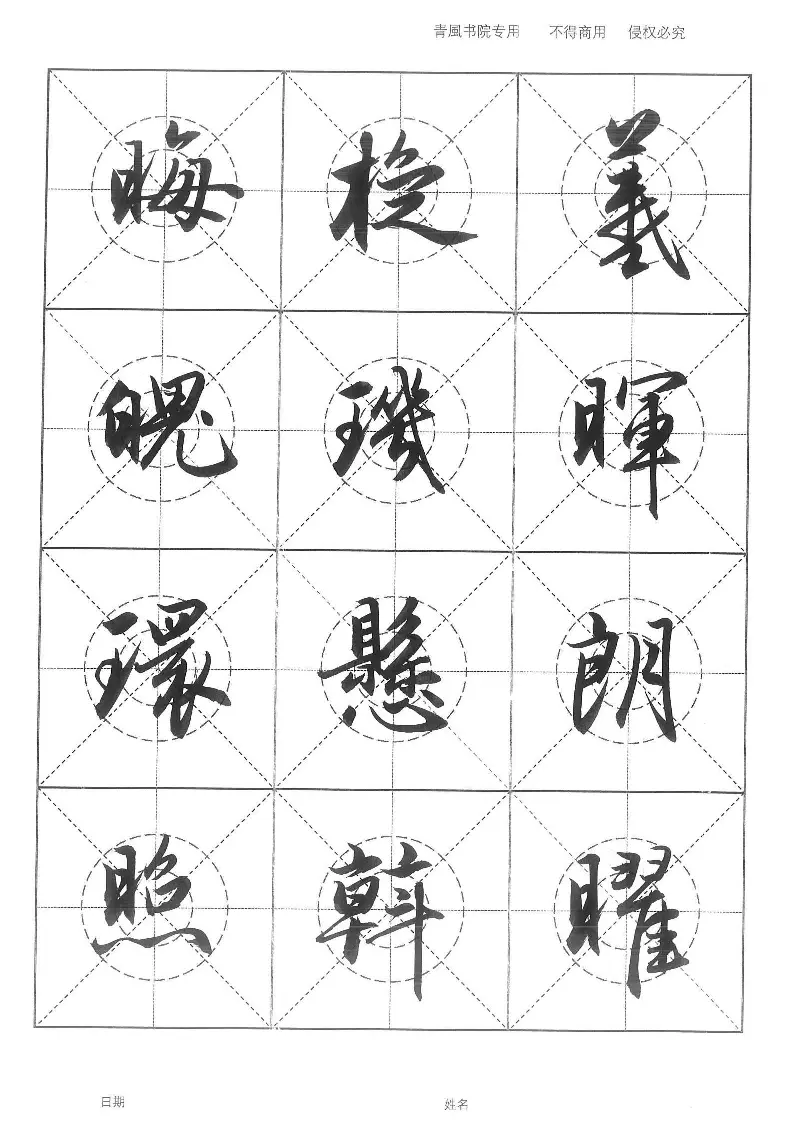 青風书院专用 不得商用 侵权必究
羲暉朗曜
旋璣懸斡
晦魄環照
日期 姓名